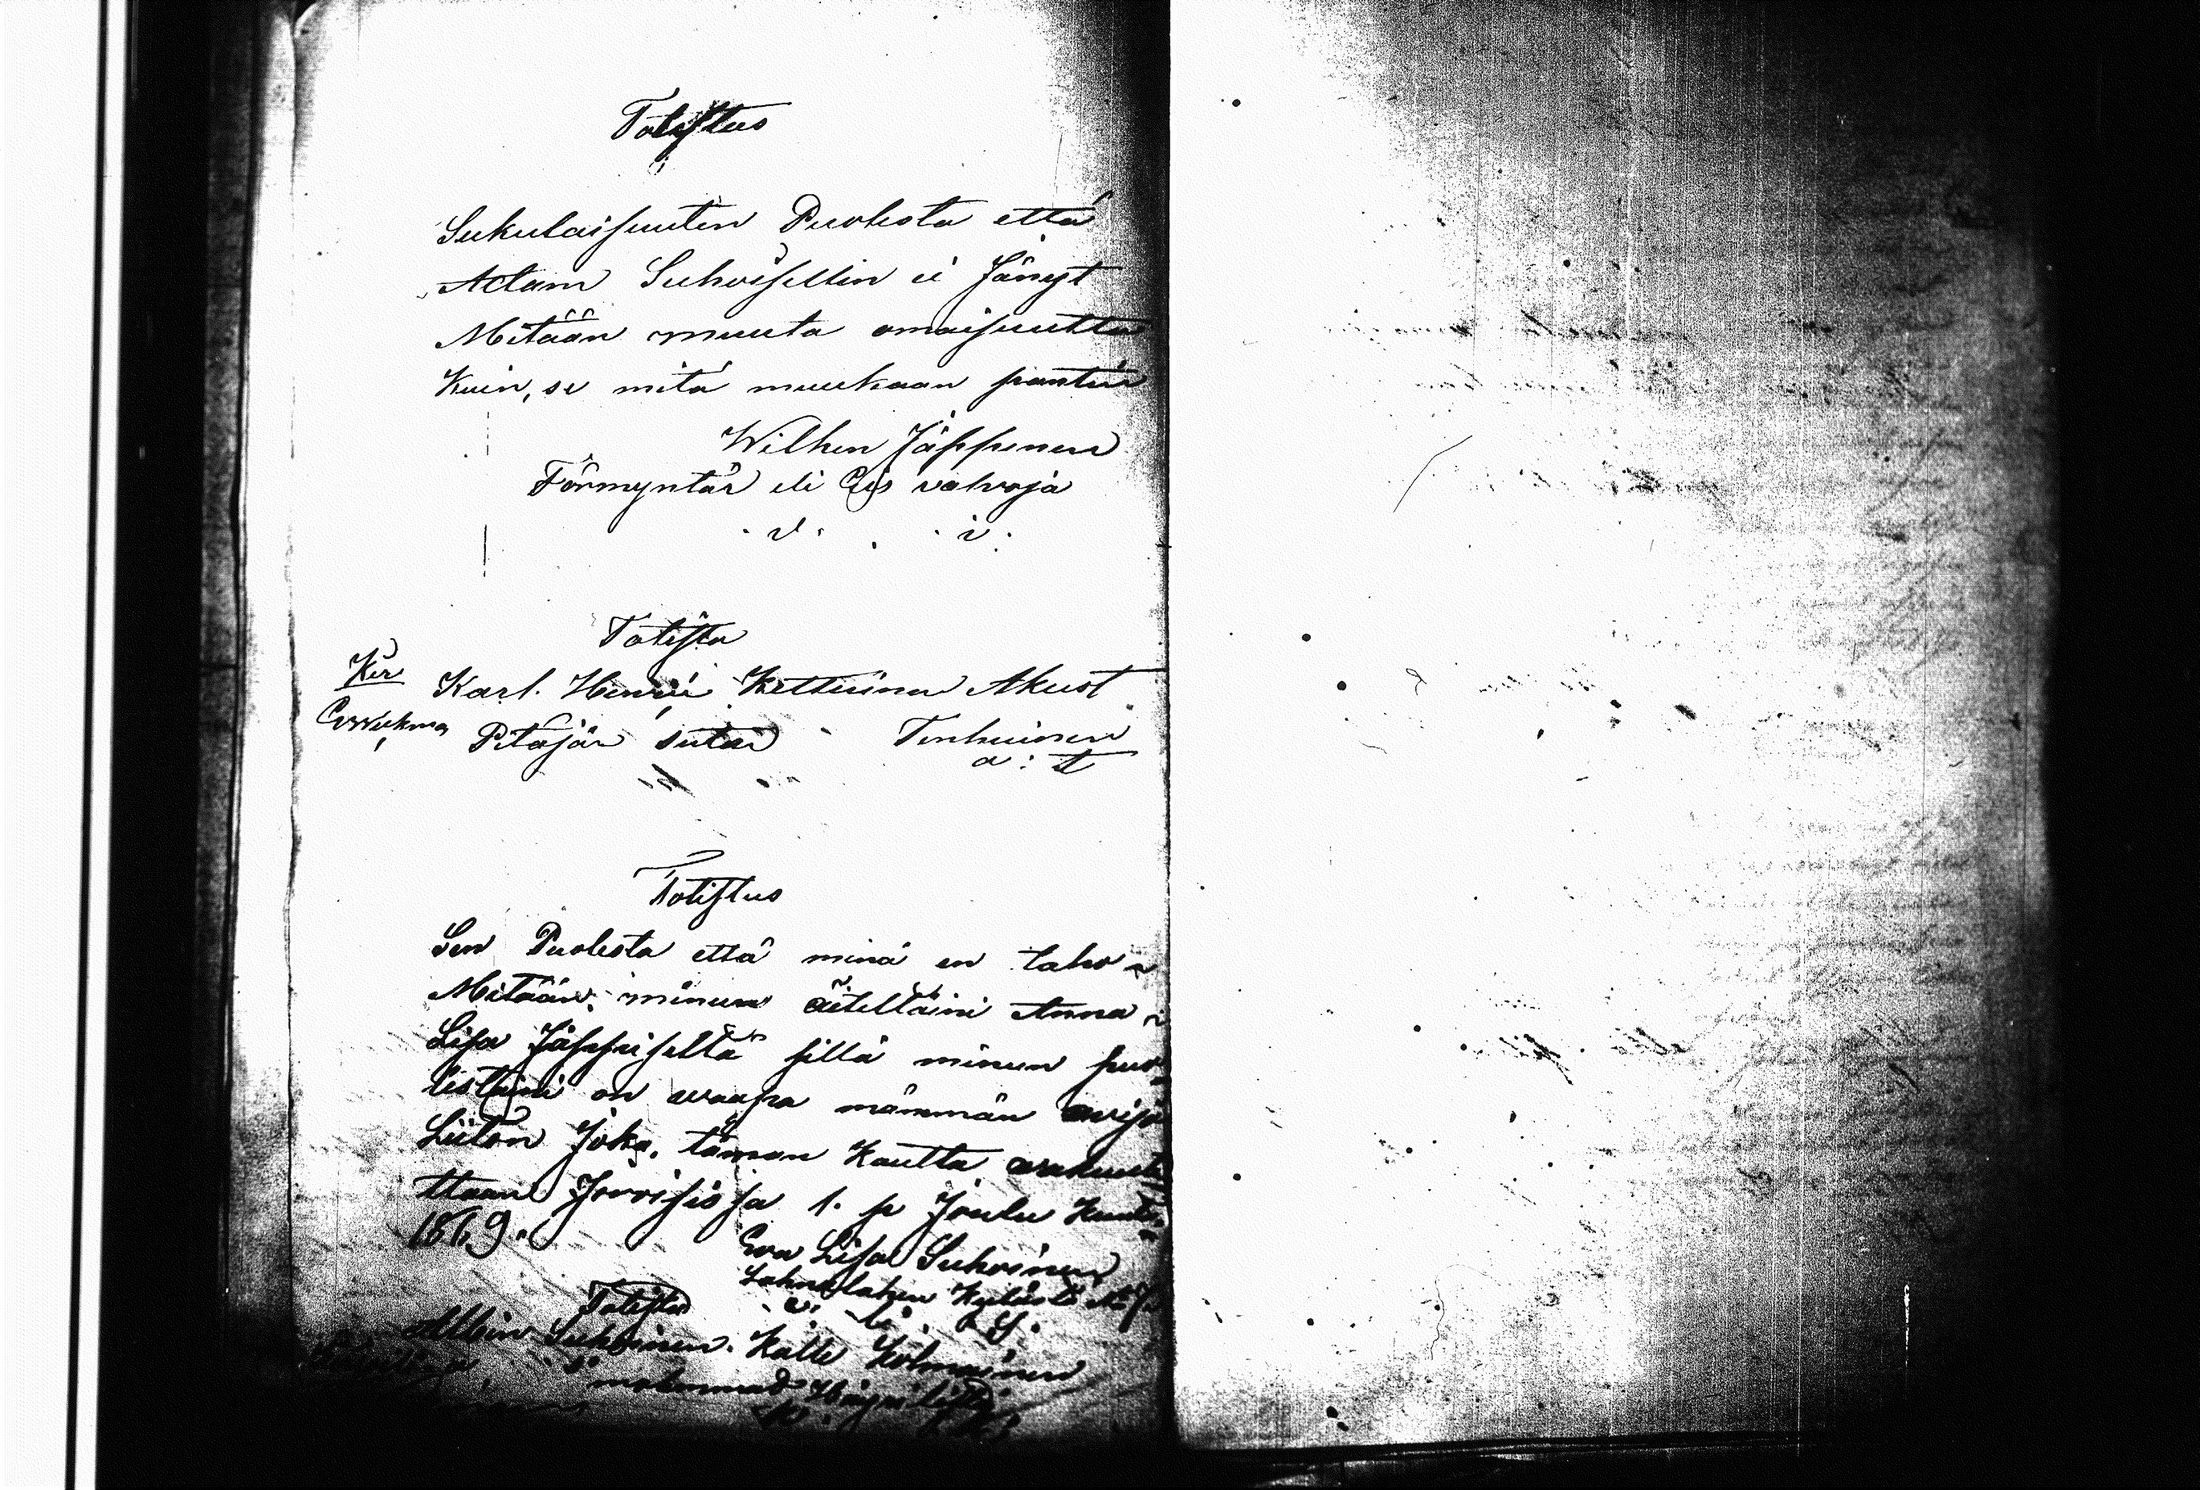 Totistus
Sukulaisuuten Puolesta että
Adam Suhoisellin ei Jänyt
Mitään muuta omaisuutta
Kuin, se mitä muukaan pantiin
Wilhen Jäppinen
Förmyntär eli Esi valvoja
v. i.
Totista
Karl. Henrii Kettuinen Akust
Pitäjän sutar Tenhuinen
a: t
Totistus
Sen Puolesta että minä en taho
Mitään minun äiteltäini Anna
Lisa Jäppiseltä sillä minun puo
lestaini on waapa mämmän avijo
Liiton Joka, täman Kautta wakuute
ttaan Jorosissa 1. p Joulu Kuuta
1869.
Ewa Lisa Suhoinen
Lahnalahen Kylästä
Totista
Albin Suhoinen. Kalle Kolmainen